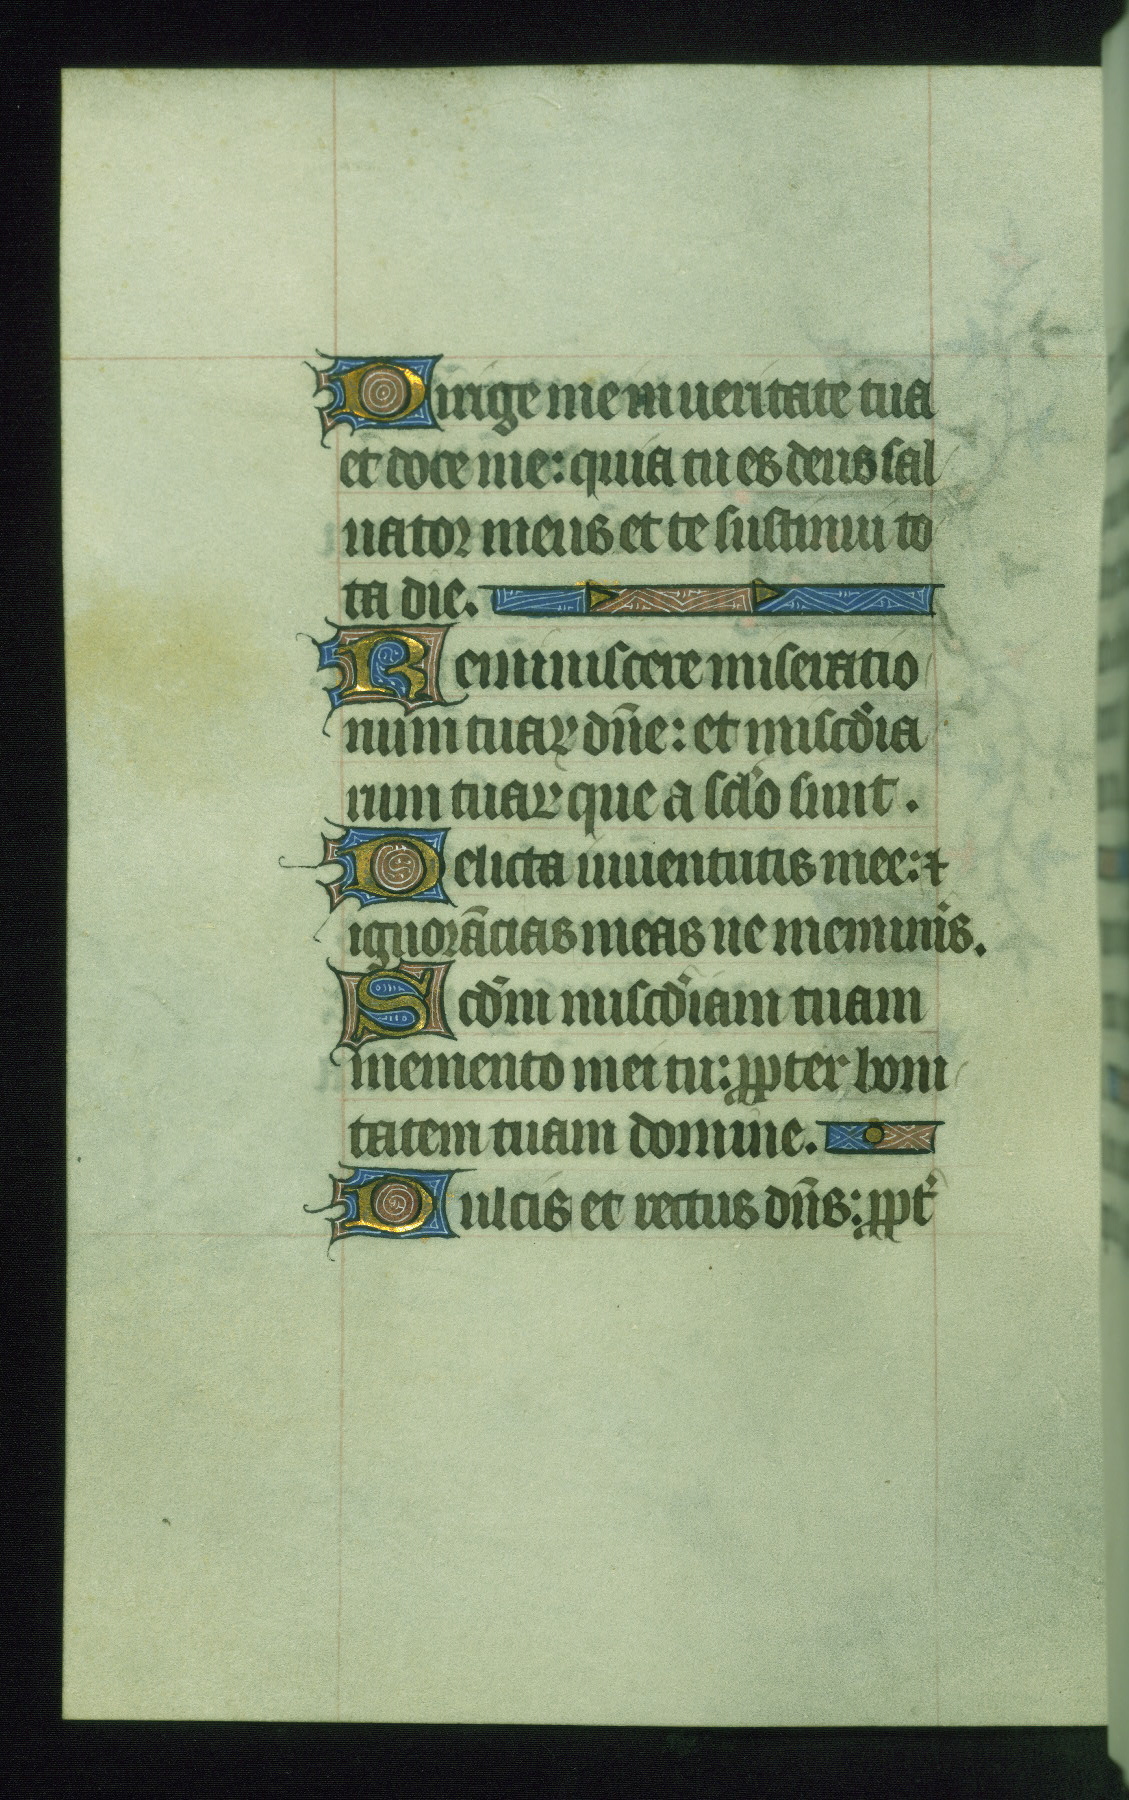 Dirige me in ueritate tua
et doce me: quia tu es deus sal
uator meus et te sustinui to
ta die.
Reminiscere miseratio
num tuaꝝ dn̄e: et miscd̾ia
rum tuaꝝ que a scl̾o sunt.
Delicta iuuentutis mee: ⁊
ignorācias meas ne memin̾is.
Scd̾m miscd̾iam tuam
memento mei tu: ꝓpter boni
tatem tuam domine.
Dulcis et rectus dn̄s: ꝓpt̾